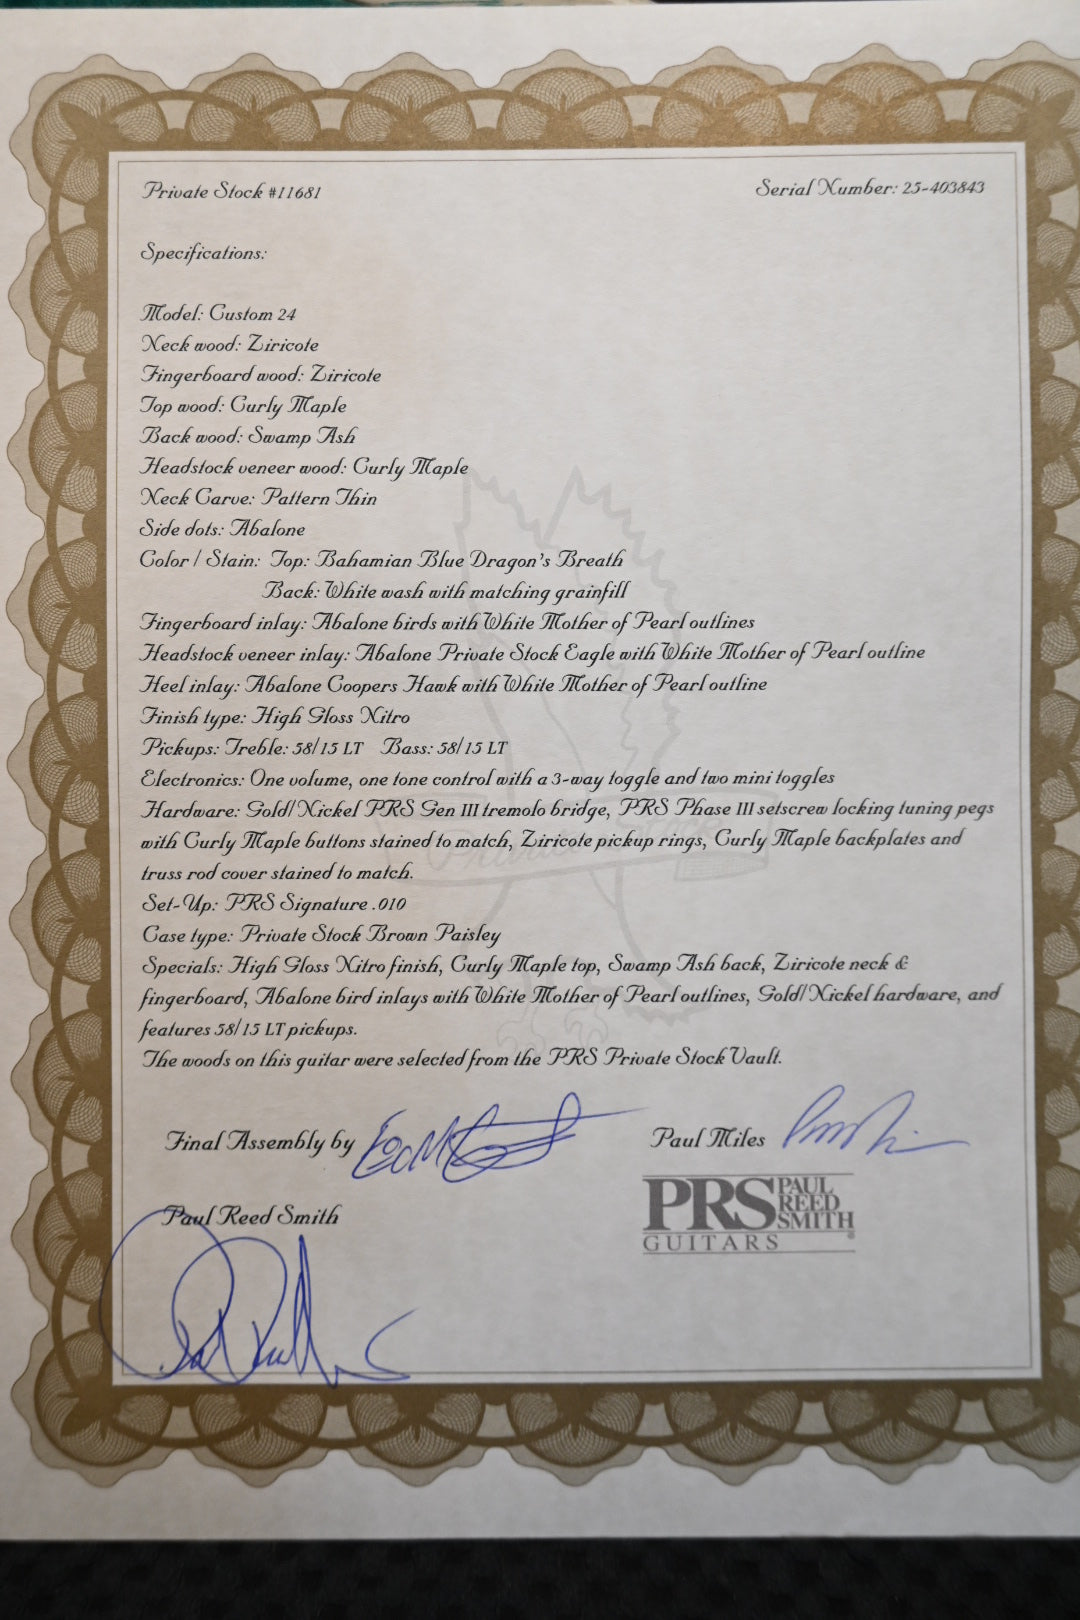 Private Stock #11681
Serial Number: 25-403843
Specifications:
Model: Custom 24
Neck wood: Ziricote
Fingerboard wood: Ziricote
Top wood: Curly Maple
Back wood: Swamp Ash
Headstock veneer wood: Curly Maple
Neck Carve: Pattern Thin
Side dots: Abalone
Color / Stain: Top: Bahamian Blue Dragon's Breath
Back: White wash with matching grainfill
Fingerboard inlay: Abalone birds with White Mother of Pearl outlines
Headstock veneer inlay: Abalone Private Stock Eagle with White Mother of Pearl outline
Heel inlay: Abalone Coopers Hawk with White Mother of Pearl outline
Finish type: High Gloss Nitro
Pickups: Treble: 58/15 LT Bass: 58/15 LT
Electronics: One volume, one tone control with a 3-way toggle and two mini toggles
Hardware: Gold/Nickel PRS Gen III tremolo bridge, PRS Phase III setscrew locking tuning pegs
with Curly Maple buttons stained to match, Ziricote pickup rings, Curly Maple backplates and
truss rod cover stained to match.
Set-Up: PRS Signature .010
Case type: Private Stock Brown Paisley
Specials: High Gloss Nitro finish, Curly Maple top, Swamp Ash back, Ziricote neck &
fingerboard, Abalone bird inlays with White Mother of Pearl outlines, Gold/Nickel hardware, and
features 58/15 LT pickups.
The woods on this guitar were selected from the PRS Private Stock Vault.
Final Assembly by
Paul Miles
Paul Reed Smith
PRS PAUL REED SMITH
GUITARS